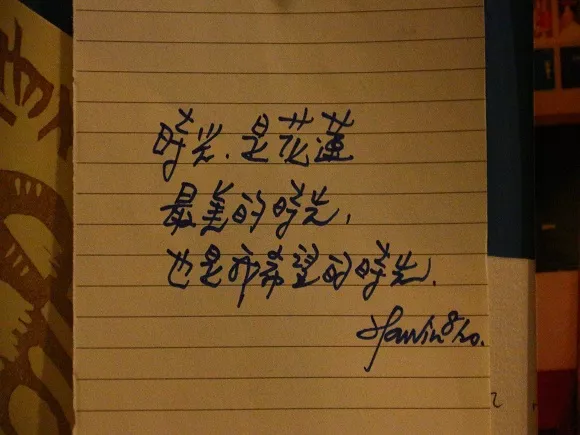 時光.是花蓮
最美的時光,
也是希望的時光.